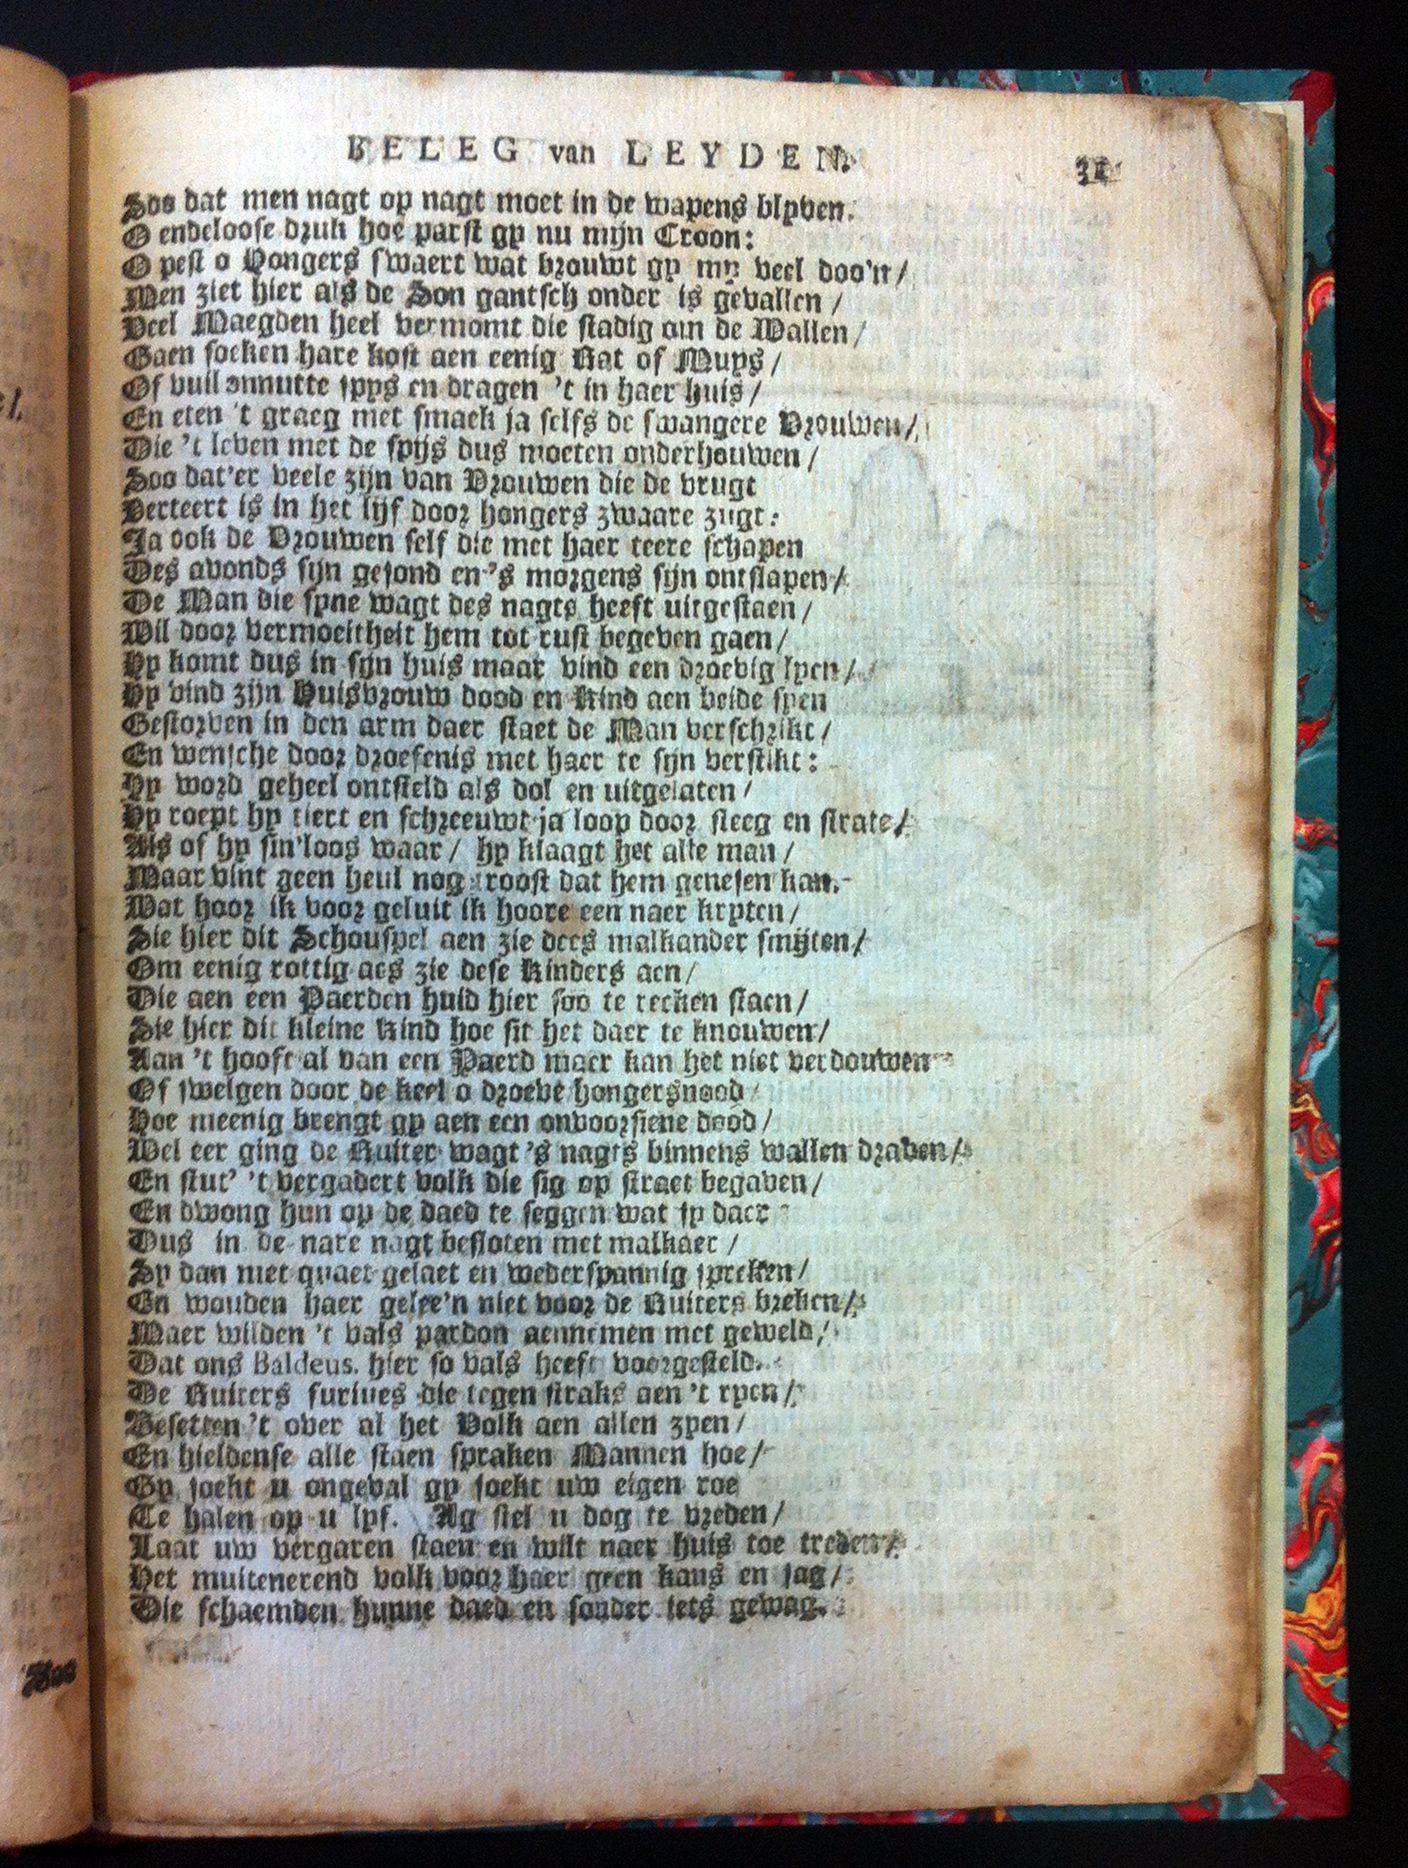 BELEG van LEYDEN. 31
Soo dat men nagt op nagt moet in de wapens blyven.
O endeloose druk hoe parst gy nu mijn Croon:
O pest o Hongers swaert wat brouwt gy my veel doo'n /
Men ziet hier als de Son gantsch onder is gevallen /
Veel Maegden heel vermomt die stadig om de Wallen /
Gaen soeken hare kost aen eenig Rat of Muys /
Of vuil onnutte spys en dragen 't in haer huis /
En eten 't graeg met smaek ja selfs de swangere Vrouwen /
Die 't leven met de spijs dus moeten onderhouwen /
Soo dat'er veele zijn van Vrouwen die de vrugt
Verteert is in het lijf door hongers zwaare zugt:
Ja ook de Vrouwen self die met haer teere schapen
Des avonds sijn gesond en 's morgens sijn ontslapen /
De Man die syne wagt des nagts heeft uitgestaen /
Wil door vermoeitheit hem tot rust begeven gaen /
Hy komt dus in sijn huis maar vind een droevig lyen /
Hy vind zijn Huisvrouw dood en Kind aen beide syen
Gestorven in den arm daer staet de Man verschrikt /
En wensche door droefenis met haer te sijn verstikt:
Hy word geheel ontsteld als dol en uitgelaten /
Hy roept hy tiert en schreeuwt ja loop door steeg en strate /
Als of hy sin'loos waar / hy klaagt het alle man /
Maar vint geen heul nog troost dat hem genesen kan.
Wat hoor ik voor geluit ik hoore een naer kryten /
Sie hier dit Schouspel aen zie dees malkander smijten /
Om eenig rottig aes zie dese Kinders aen /
Die aen een Paerden huid hier soo te recken staen /
Sie hier dit kleine Kind hoe sit het daer te knouwen /
Aan 't hooft al van een Paerd maer kan het niet verdouwen
Of swelgen door de keel o droeve hongersnood /
Hoe meenig brengt gy aen een onvoorsiene dood /
Wel eer ging de Ruiter wagt 's nagts binnens wallen draven /
En stut' 't vergadert volk die sig op straet begaven /
En dwong hun op de daed te seggen wat sy daer
Dus in de nare nagt besloten met malkaer /
Sy dan met quaet gelaet en wederspannig spreken /
En wouden haer gelee'n niet voor de Ruiters breken /
Maer wilden 't vals pardon aennemen met geweld /
Dat ons Baldeus. hier so vals heeft voorgesteld.
De Ruiters furiues die tegen straks aen 't ryen /
Besetten 't over al het Volk aen allen zyen /
En hieldense alle staen spraken Mannen hoe /
Gy soekt u ongeval gy soekt uw eigen roe
Te halen op u lyf. Ag stel u dog te vreden /
Laat uw vergaren staen en wilt naer huis toe treden /
Het muitenerend volk voor haer geen kans en sag /
Die schaemden hunne daed en sonder iets gewag.